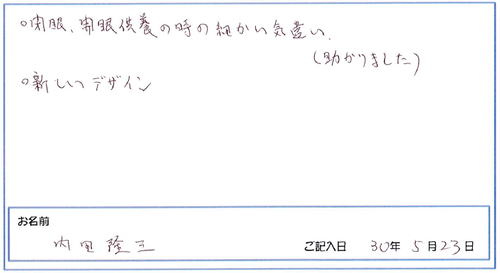 ○閉眼、開眼供養の時の細かい気遣い.
(助かりました)
○新しいデザイン
お名前
内田隆三
ご記入日 30年 5月23日